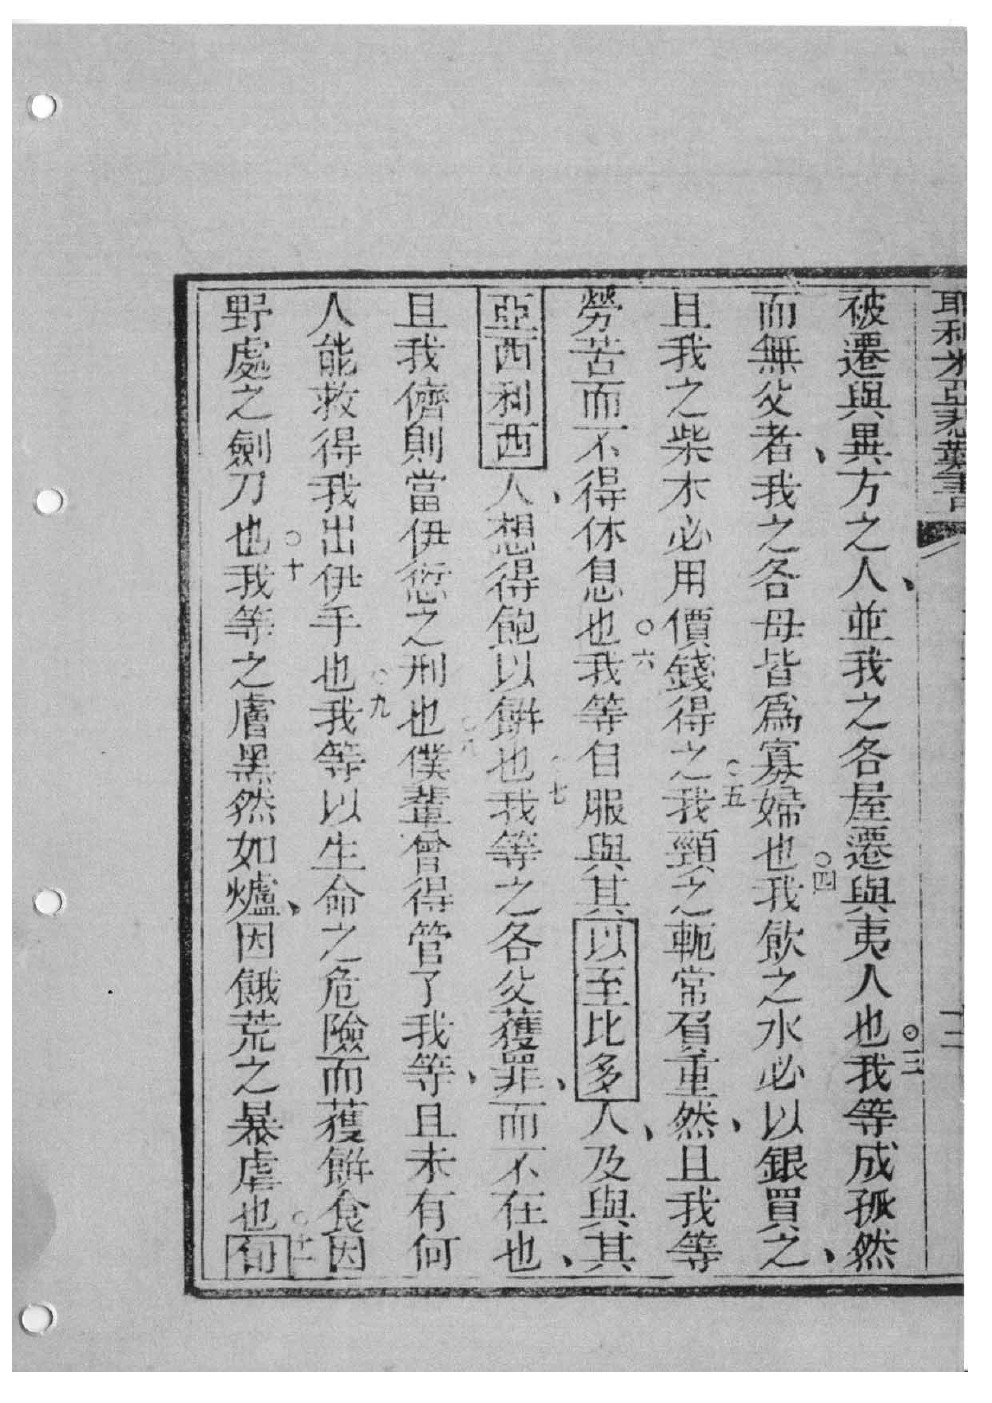 耶利米亞悲歎書
被遷與異方之人、並我之各屋遷與夷人也○三我等成孤然
而無父者、我之各母皆爲寡婦也○四我飲之水必以銀買之、
且我之柴木必用價錢得之○五我頸之軛常負重然、且我等
勞苦而不得休息也○六我等自服與其以至比多人、及與其
亞西利西人、想得飽以餠也○七我等之各父獲罪、而不在也、
且我儕則當伊愆之刑也○八僕輩曾得管了我等、且未有何
人能救得我出伊手也○九我等以生命之危險而獲餠食因
野處之劍刀也○十我等之膚黑然如爐、因餓荒之暴虐也○十一旬